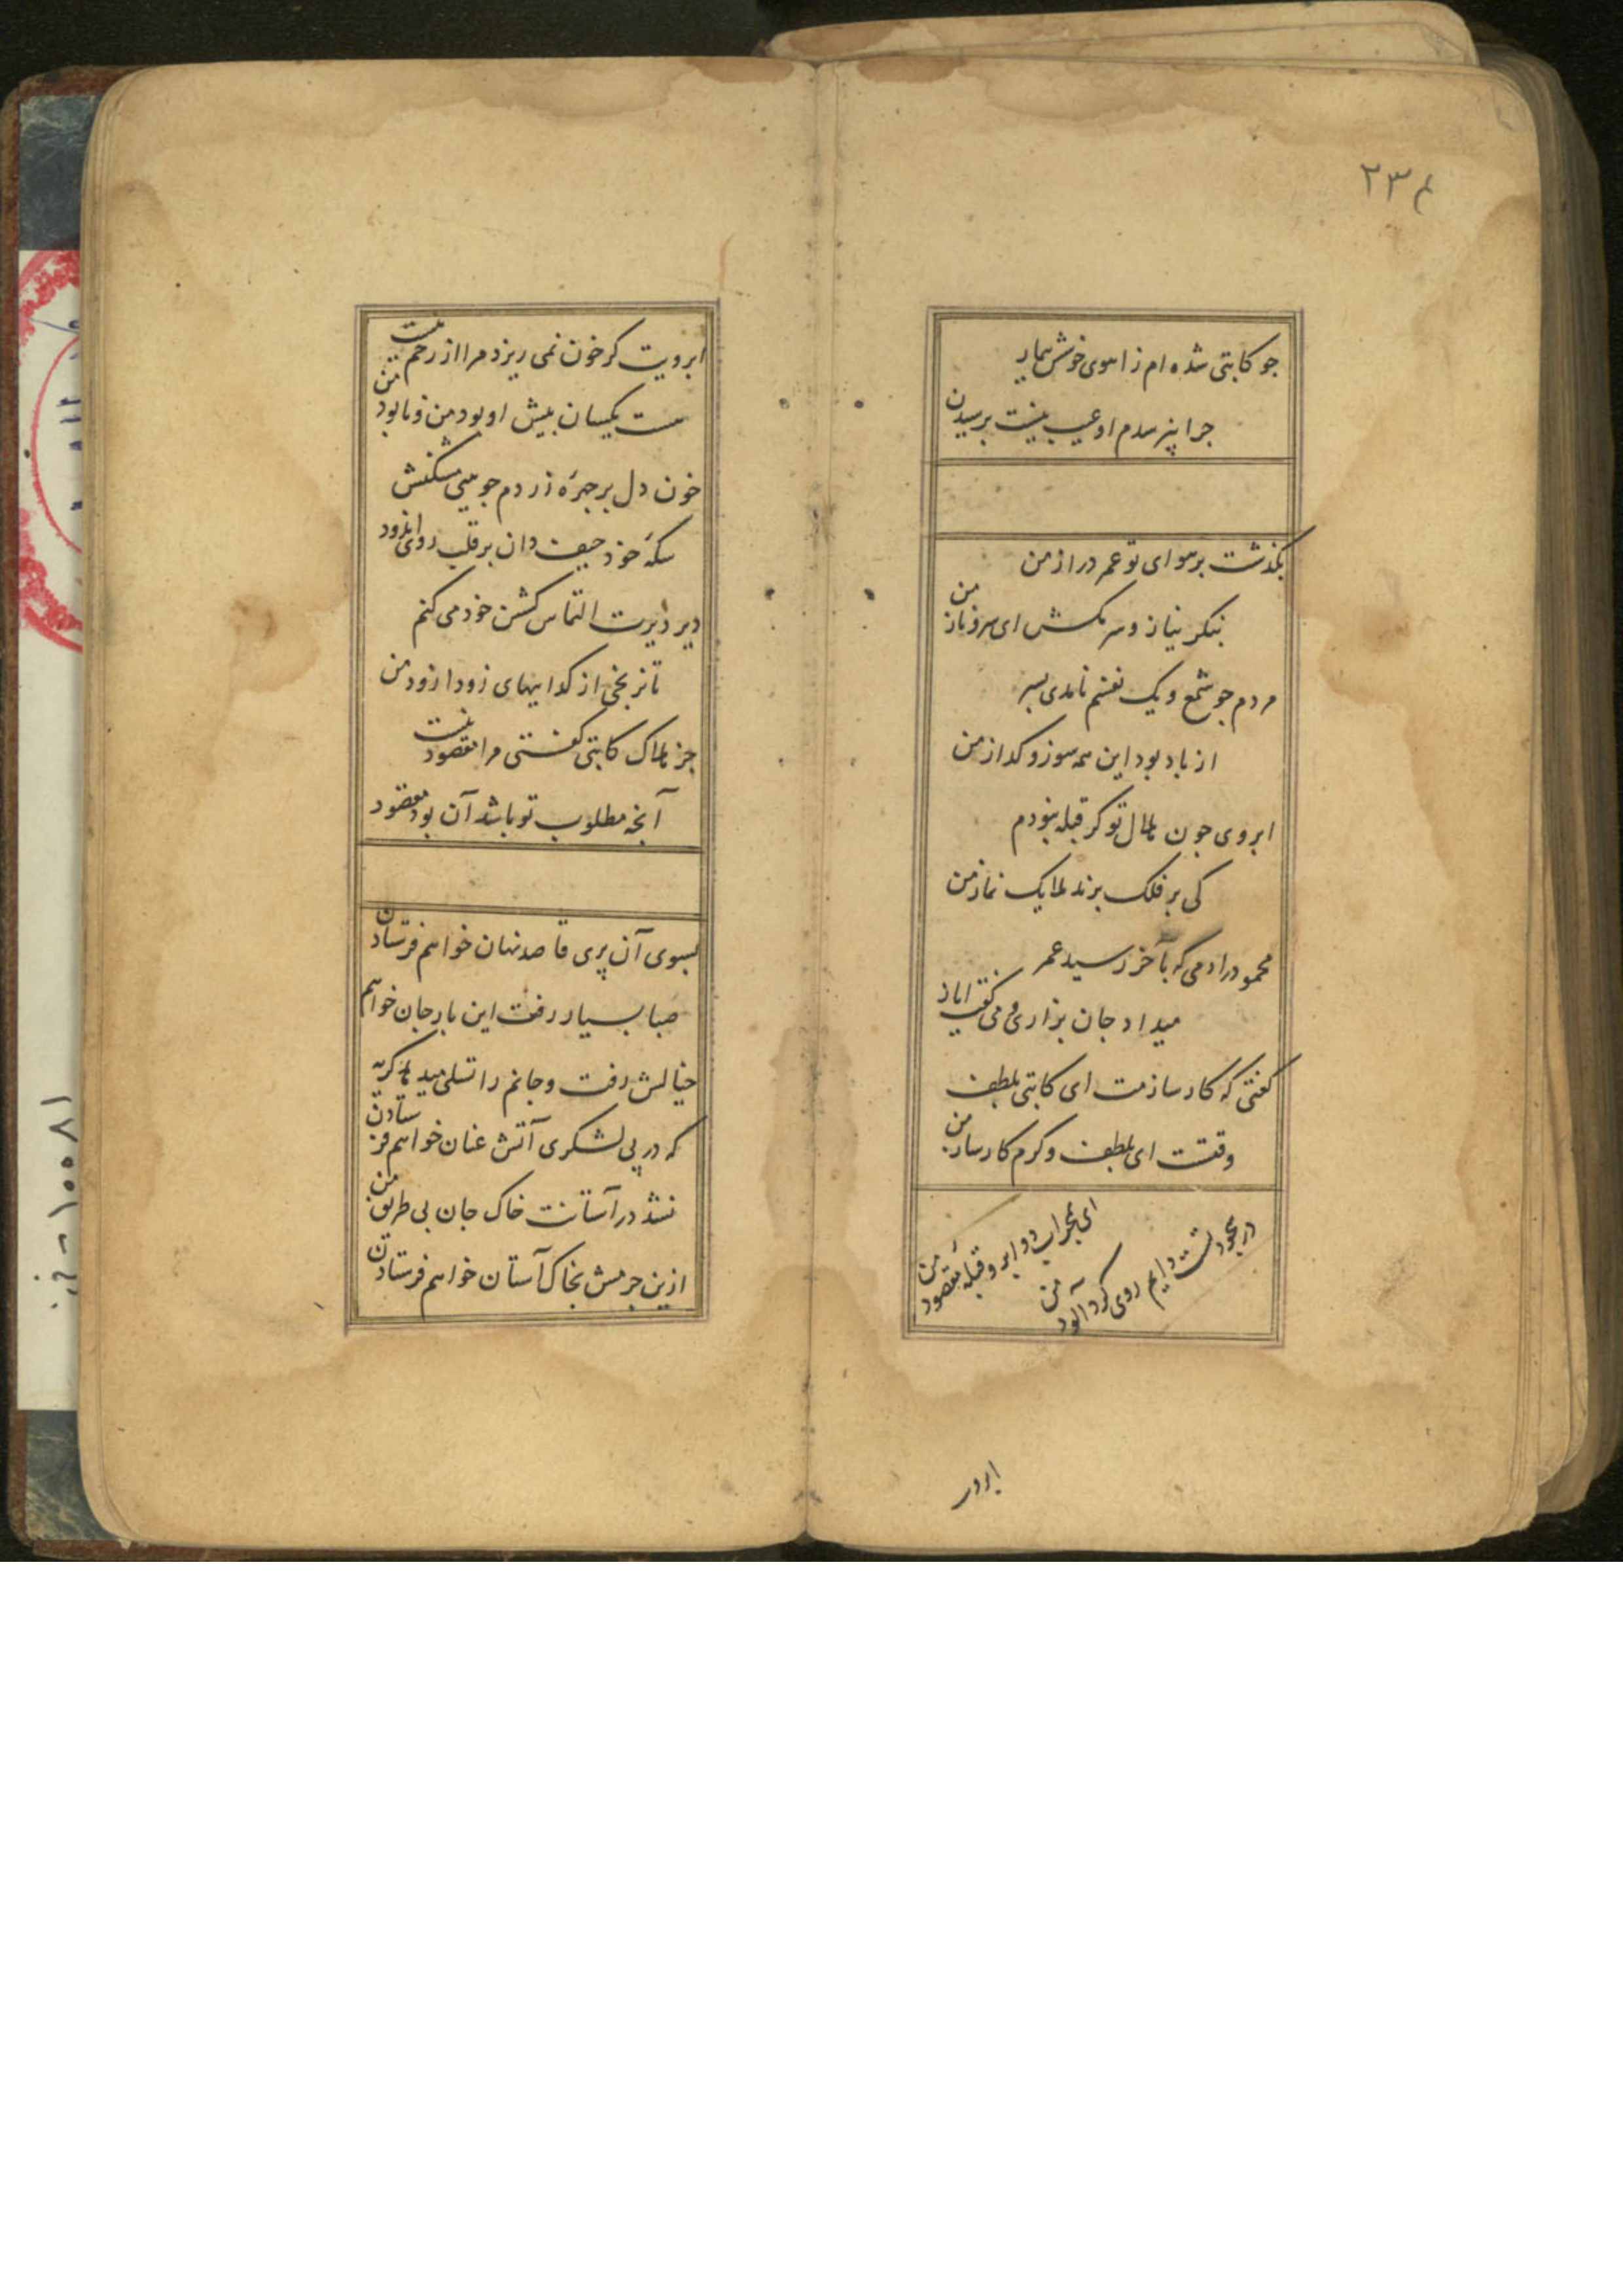 ۲۳۴
جو کاتبی شده ام ز اهوی خوش بیمار
جرا نپرسدم او عیب نیست پرسیدن
بگذشت بر هوای تو عمر دراز من
بنگر نیاز و سر مکش ای سرو ناز من
مردم جو شمع و یک نفسم نامدی بسر
از باد بود این همه سوز و کداز من
ابروی جون هلال تو کر قبله نبودم
کی بر فلک برند ملایک نماز من
محمود را دمی که بآخر رسید عمر
میداد جان بزاری و می گفت ایاز من
کفتی که کار سازمت ای کاتبی بلطف
وقتست ای بلطف و کرم کارساز من
ای محراب دو ابرو قبلهٔ مقصود من
در سجود تست دایم روی کرد آلود من
ابرو
ابرویت کر خون نمی ریزد مرا از رحم نیست
هست یکسان پیش او بود من و نابود من
خون دل بر جهرهٔ زردم جو بینی مشکنش
سکهٔ خود حیف دان بر قلب روی اندود من
دیر دیرت التماس کشتن خود می کنم
تا نرنجی از کداییهای زودا زود من
جز هلاک کاتبی گفتی مرا مقصود نیست
آنچه مطلوب تو باشد آن بود مقصود من
بسوی آن پری قاصد نهان خواهم فرستادن
صبا بسیار رفت این بار جان خواهم
خیالش رفت و جانم را تسلی میدهد کریه
که در پی لشکری آتش عنان خواهم فرستادن
نشد در آستانت خاک جان بی طریق من
ازین جرمش بخاک آستان خواهم فرستادن
۱۰۰۸۱